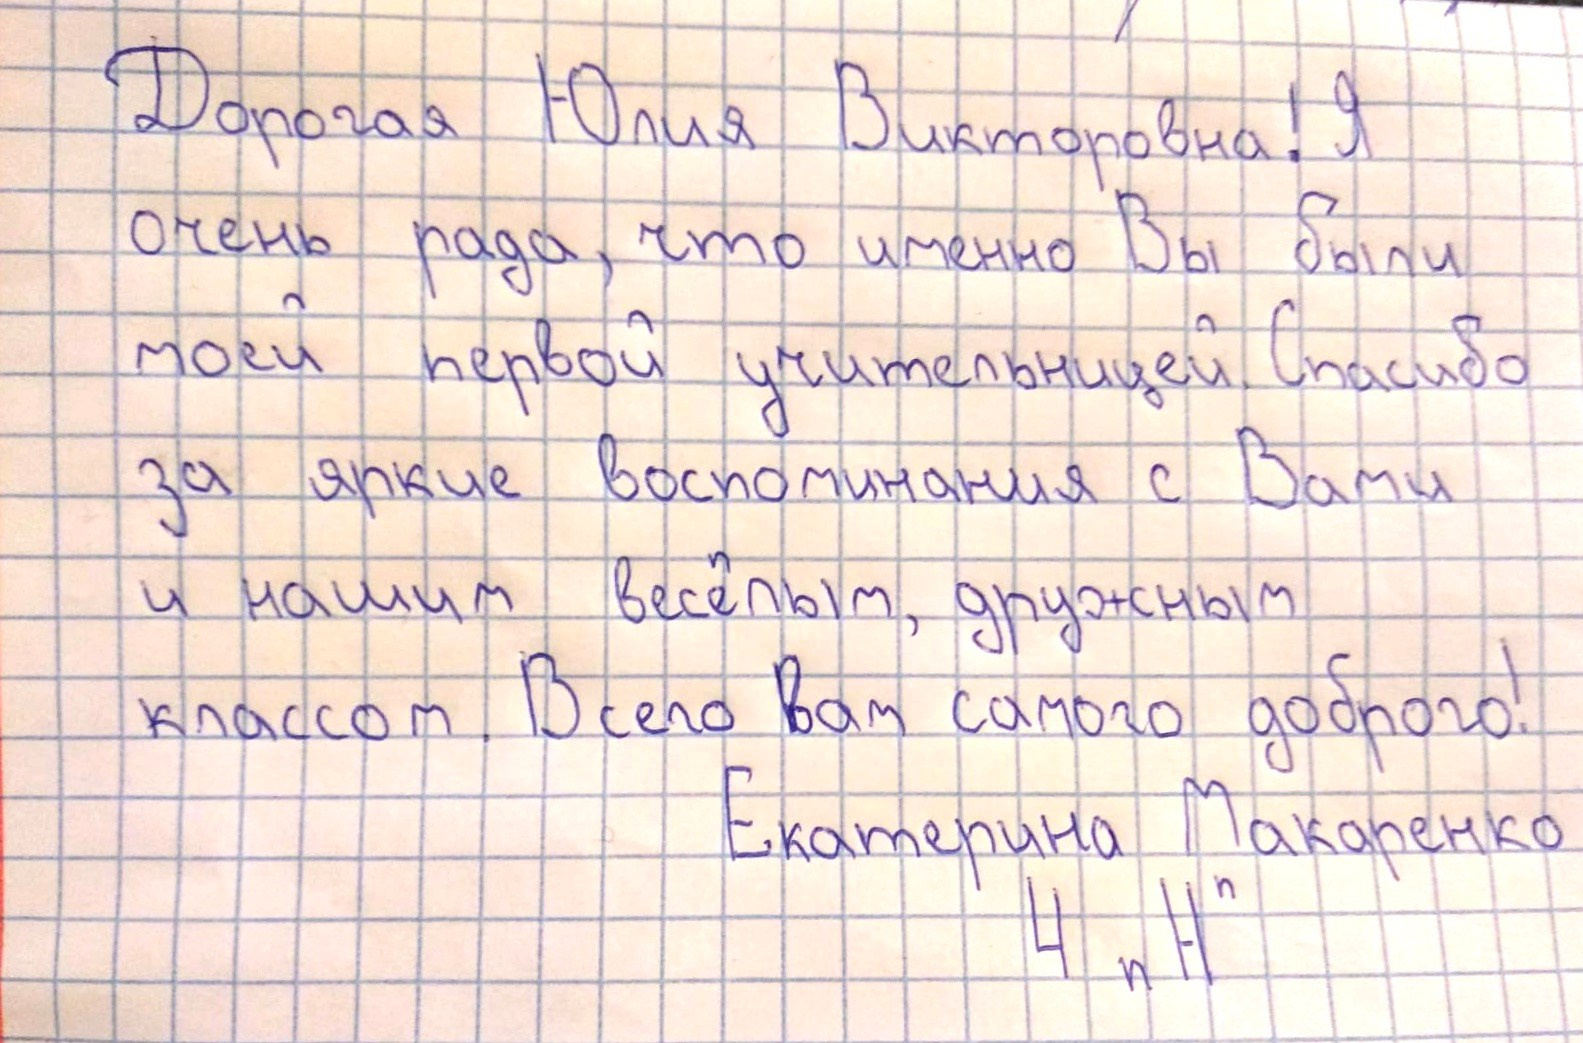 Дорогая Юлия Викторовна! Я
очень рада, что именно Вы были
моей первой учительницей. Спасибо
за яркие воспоминания с Вами
и нашим весёлым, дружным
классом. Всего Вам самого доброго!
Екатерина Макаренко
4 „Н“